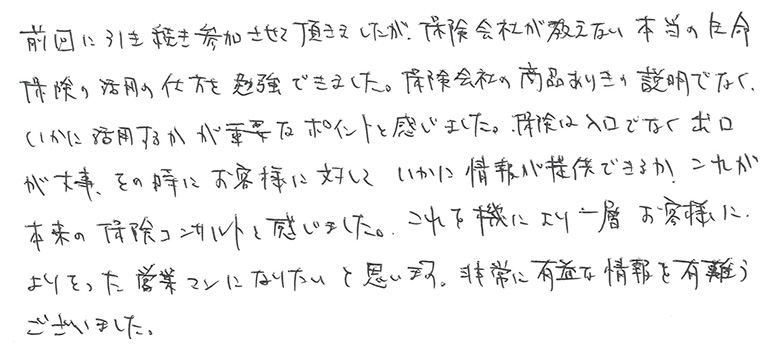 前回に引き続き参加させて頂きましたが、保険会社が教えない本当の生命
保険の活用の仕方を勉強できました。保険会社の商品ありきの説明でなく、
いかに活用するかが重要なポイントと感じました。保険は入口でなく出口
が大事、その時にお客様に対して いかに情報が提供できるか、これが
本来の保険コンサルトと感じました。これを機により一層お客様に、
よりそった営業マンになりたいと思います。非常に有益な情報を有難う
ございました。